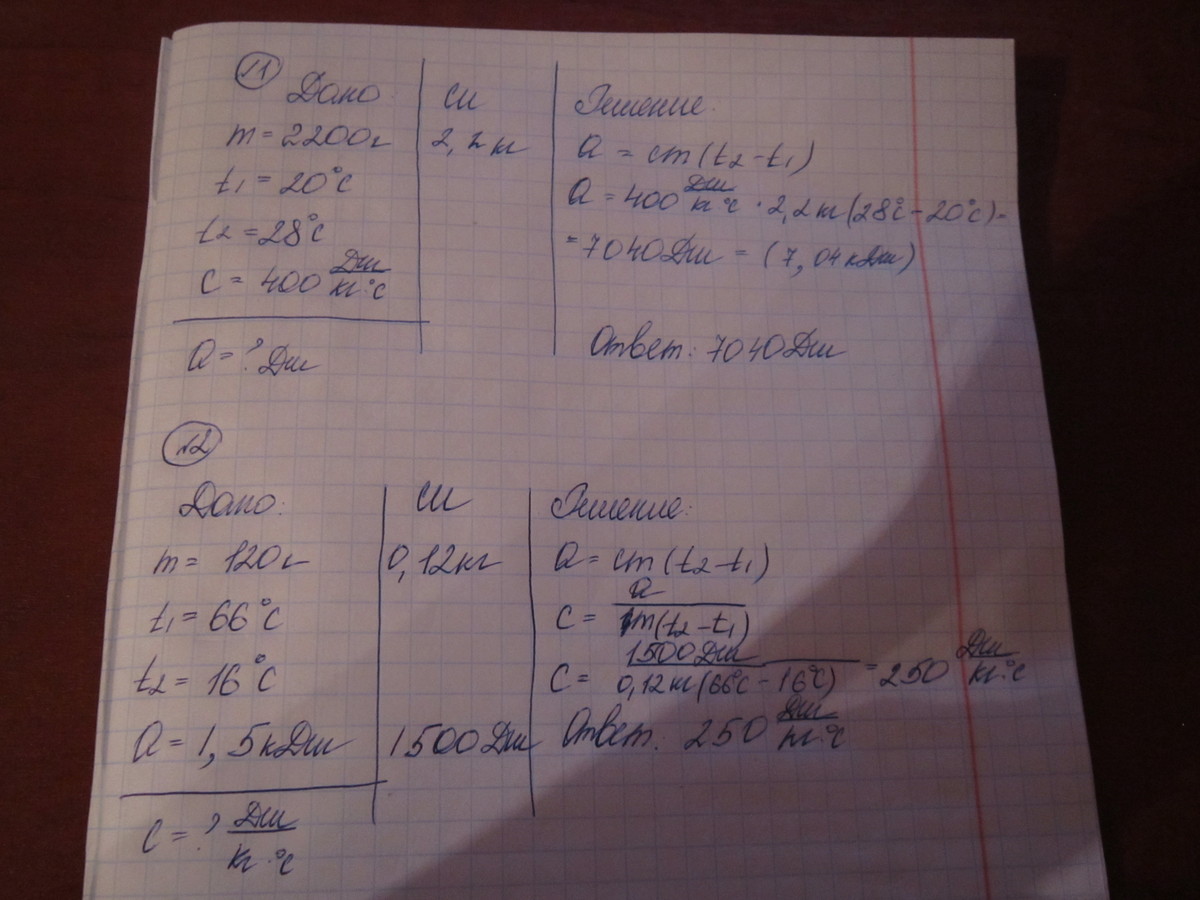 №1
Дано:
m = 2200г
t₁ = 20°C
t₂ = 28°C
C = 400 Дж/кг·°C
Q = ? Дж
СИ
2,2 кг
Решение:
Q = cm(t₂ - t₁)
Q = 400 Дж/кг·°C · 2,2 кг (28°C - 20°C) =
= 7040 Дж = (7,04 кДж)
Ответ: 7040 Дж
№2
Дано:
m = 120г
t₁ = 66°C
t₂ = 16°C
Q = 1,5 кДж
C = ? Дж/кг·°C
СИ
0,12 кг
1500 Дж
Решение:
Q = cm(t₂ - t₁)
C = Q/m(t₂ - t₁)
C = 1500 Дж/0,12 кг (66°C - 16°C) = 250 Дж/кг·°C
Ответ: 250 Дж/кг·°C